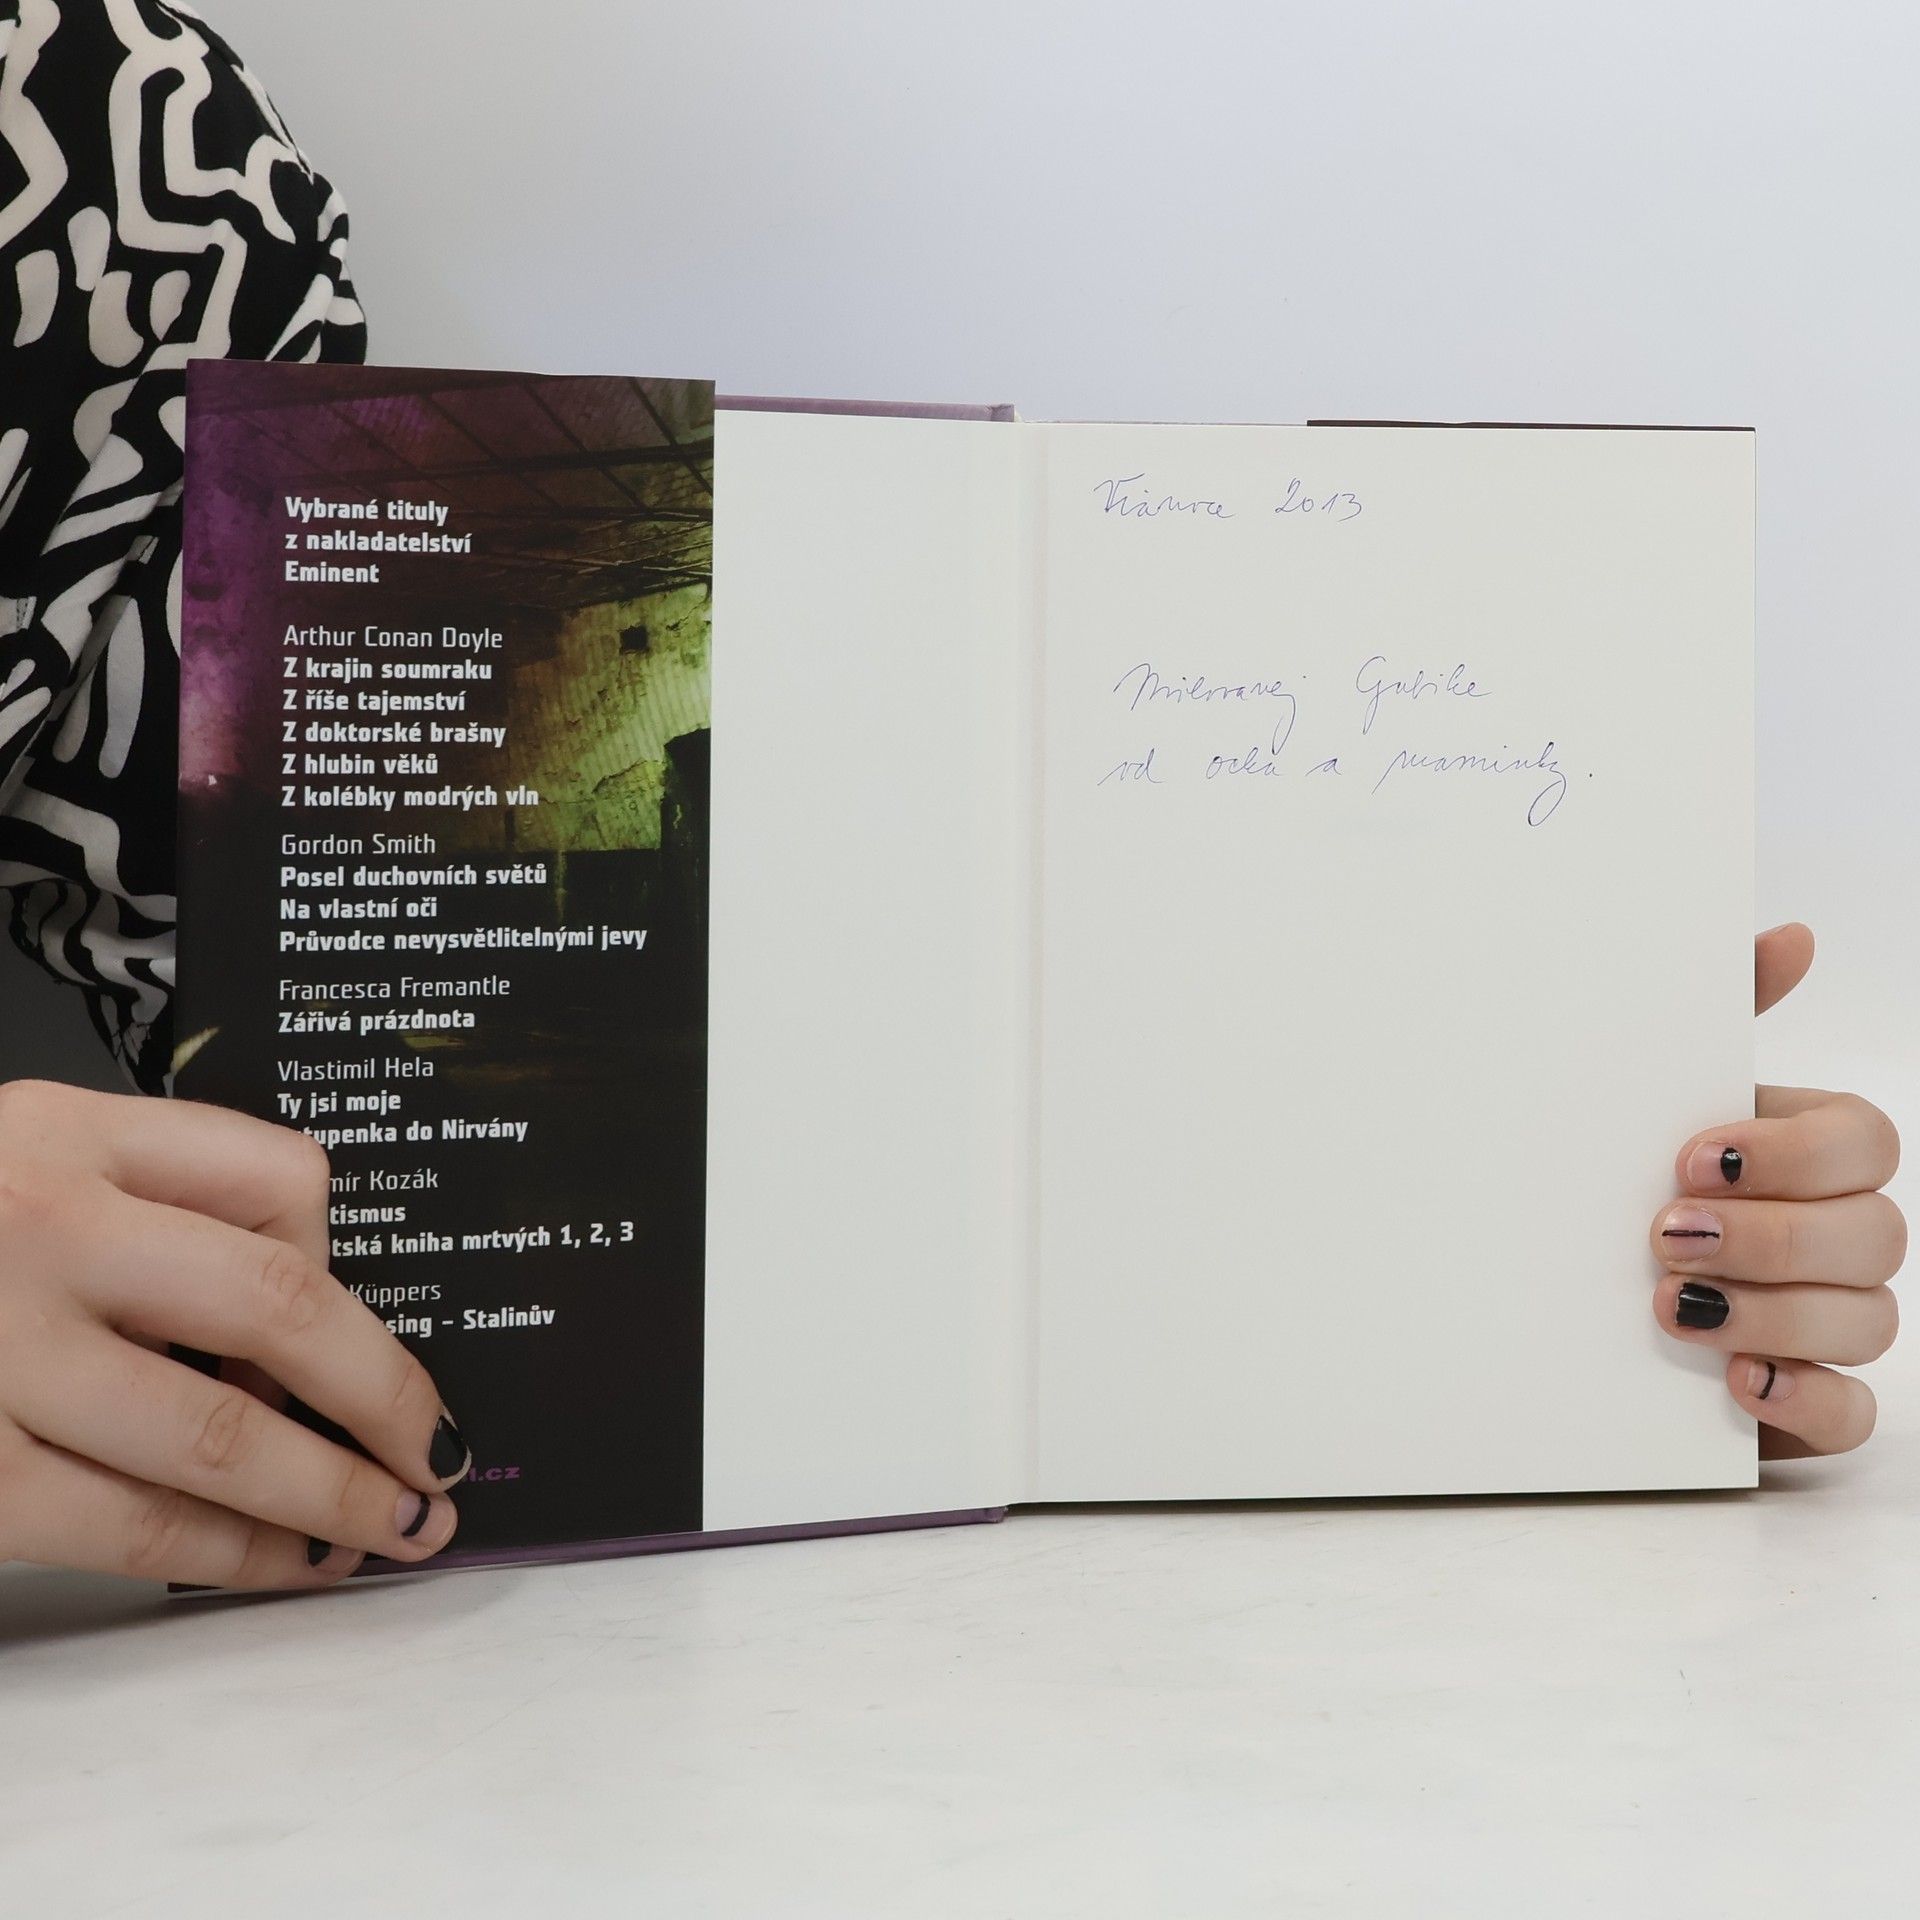 Vybrané tituly
z nakladatelství
Eminent
Arthur Conan Doyle
Z krajin soumraku
Z říše tajemství
Z doktorské brašny
Z hlubin věků
Z kolébky modrých vln
Gordon Smith
Posel duchovních světů
Na vlastní oči
Průvodce nevysvětlitelnými jevy
Francesca Fremantle
Zářivá prázdnota
Vlastimil Hela
Ty jsi moje
tupenka do Nirvány
mír Kozák
tismus
tská kniha mrtvých 1, 2, 3
Küppers
sing – Stalinův
.cz
Vianoce 2013
Milovanej Gabike
od ocka a maminky.